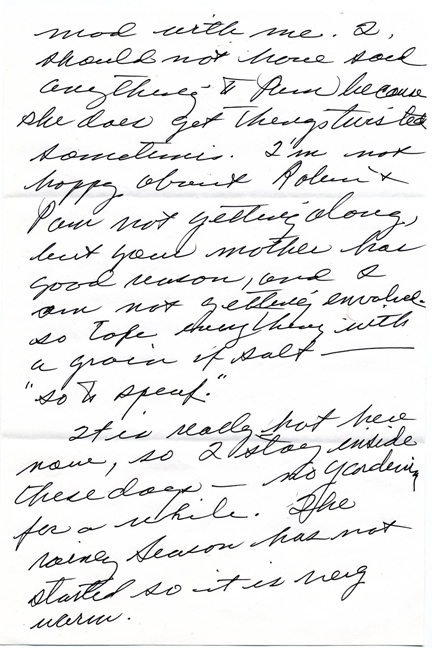 mad with me. I,
should not have said
anything to Pam because
she does get things twisted
sometimes. I'm not
happy about Robin &
Pam not getting along,
but your mother has
good reason, and I
am not getting involved.
so take everything with
a grain of salt —
"so to speak."
It is really hot here
now, so I stay inside
these days — no gardening
for a while. The
rainey season has not
started so it is very
warm.